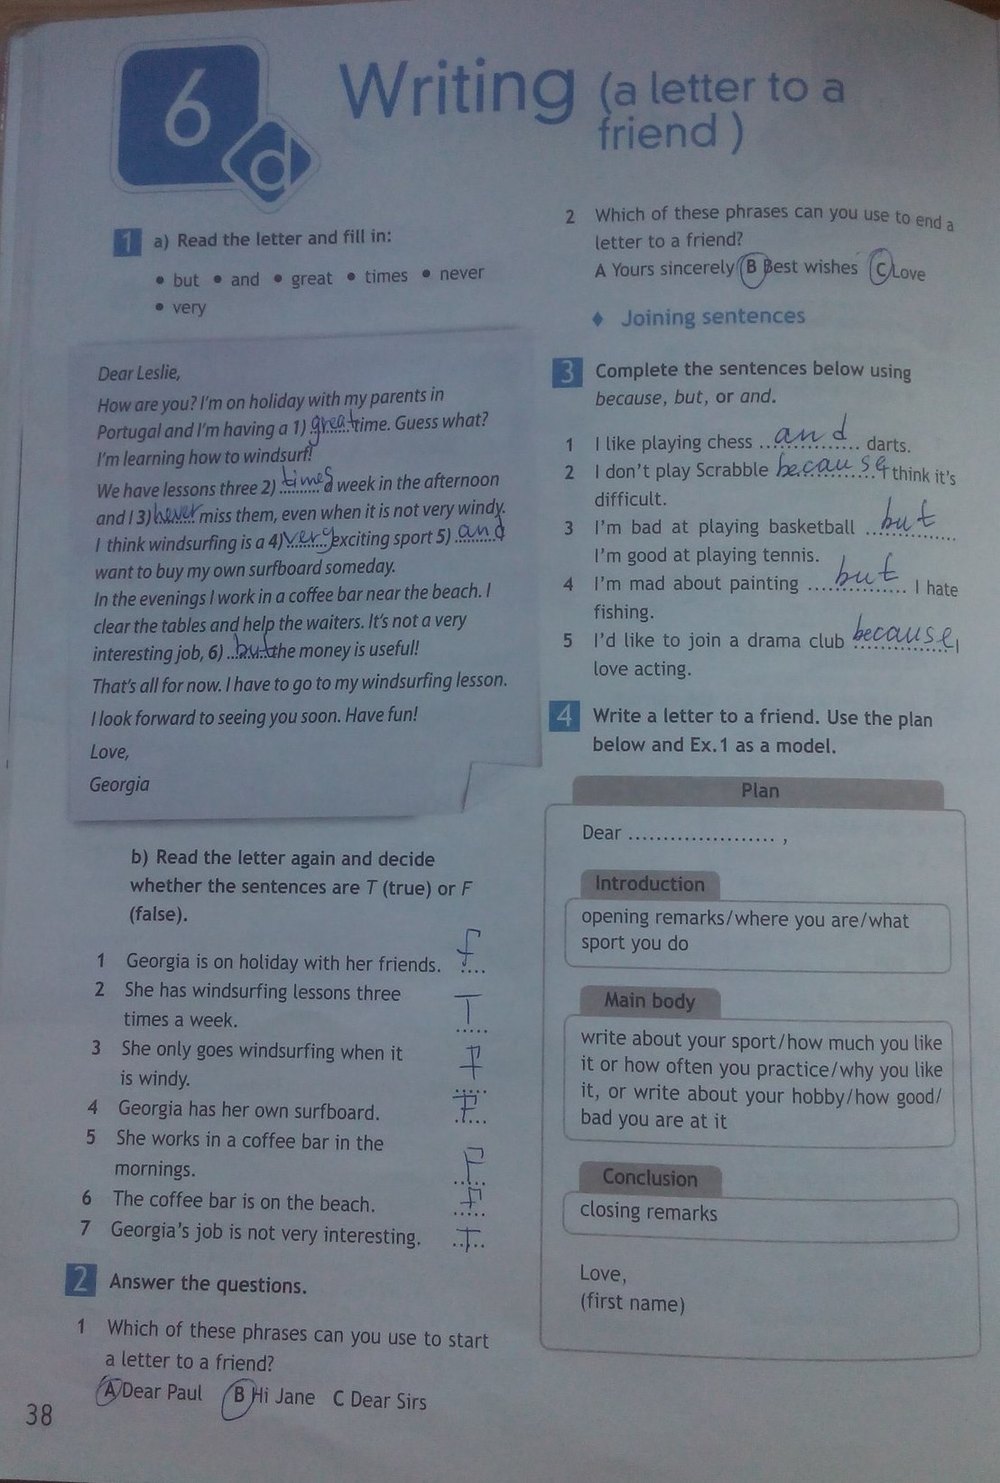 6
d
Writing (a letter to a
friend )
1 a) Read the letter and fill in:
• but • and • great • times • never
• very
Dear Leslie,
How are you? I'm on holiday with my parents in
Portugal and I'm having a 1) great time. Guess what?
I'm learning how to windsurf!
We have lessons three 2) times a week in the afternoon
and I 3) never miss them, even when it is not very windy.
I think windsurfing is a 4) very exciting sport 5) and
want to buy my own surfboard someday.
In the evenings I work in a coffee bar near the beach. I
clear the tables and help the waiters. It's not a very
interesting job, 6) but the money is useful!
That's all for now. I have to go to my windsurfing lesson.
I look forward to seeing you soon. Have fun!
Love,
Georgia
b) Read the letter again and decide
whether the sentences are T (true) or F
(false).
1 Georgia is on holiday with her friends. F
2 She has windsurfing lessons three
times a week. T
3 She only goes windsurfing when it
is windy. F
4 Georgia has her own surfboard. F
5 She works in a coffee bar in the
mornings. F
6 The coffee bar is on the beach. F
7 Georgia's job is not very interesting. T
2 Answer the questions.
1 Which of these phrases can you use to start
a letter to a friend?
A Dear Paul B Hi Jane C Dear Sirs
38
2 Which of these phrases can you use to end a
letter to a friend?
A Yours sincerely B Best wishes C Love
♦ Joining sentences
3 Complete the sentences below using
because, but, or and.
1 I like playing chess and darts.
2 I don't play Scrabble because I think it's
difficult.
3 I'm bad at playing basketball but
I'm good at playing tennis.
4 I'm mad about painting but I hate
fishing.
5 I'd like to join a drama club because I
love acting.
4 Write a letter to a friend. Use the plan
below and Ex.1 as a model.
Plan
Dear ..................... ,
Introduction
opening remarks/where you are/what
sport you do
Main body
write about your sport/how much you like
it or how often you practice/why you like
it, or write about your hobby/how good/
bad you are at it
Conclusion
closing remarks
Love,
(first name)